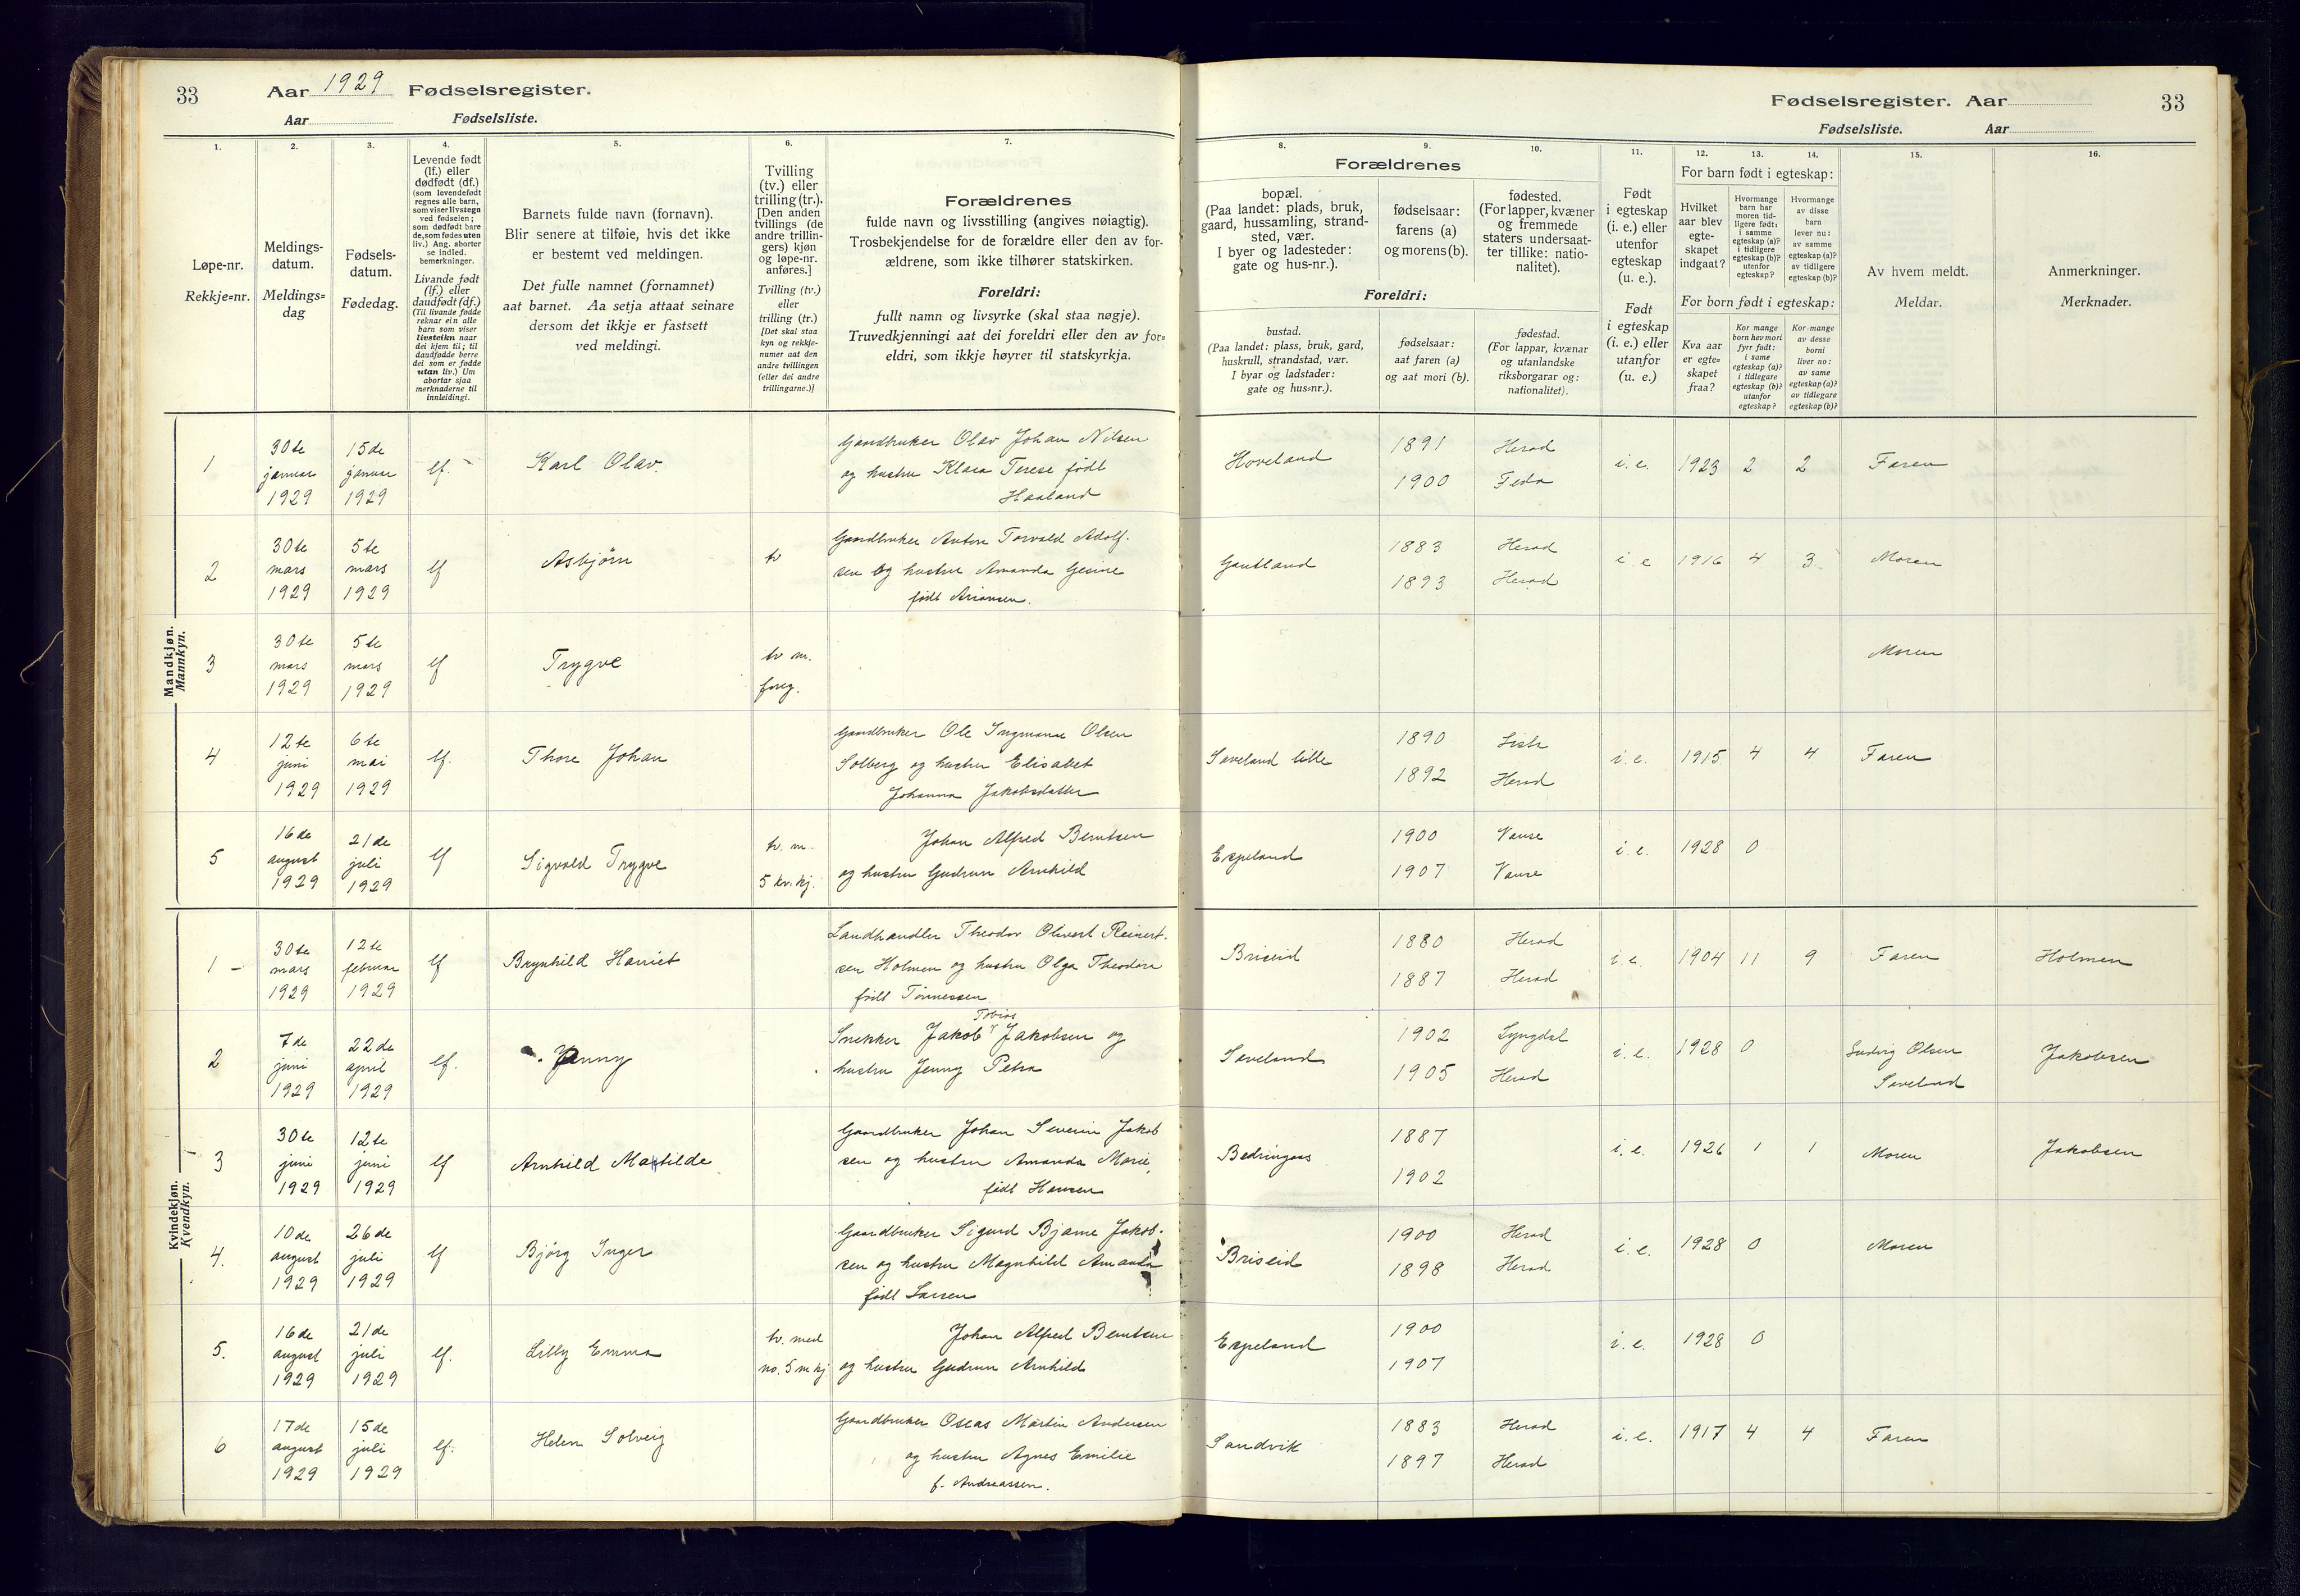 33 Aar 1929 Fødselsregister.
Aar Fødselsliste.
1.
2.
3.
4.
5.
6.
7.
Løpe-nr.
Rekkje=nr.
Meldings-
datum.
Meldings=
dag
Fødsels-
datum.
Fødedag.
Levende født
(lf.) eller
dødfødt (df.)
(som levendefødt
regnes alle barn,
som viser livstegn
ved fødselen;
som dødfødt bare
de, som fødes uten
liv.) Ang. aborter
se indled.
bemerkninger.
Livande født
(lf.) eller
daudfødt (df.)
(Til livande fødde
reknar ein alle
barn som viser
livsteikn naar
dei kjem til; til
daudfødde berre
dei som er fødde
utan liv.) Um
abortar sjaa
merknaderne til
innleidingi.
Barnets fulde navn (fornavn).
Blir senere at tilføie, hvis det ikke
er bestemt ved meldingen.
Det fulle namnet (fornamnet)
aat barnet. Aa setja attaat seinare
dersom det ikkje er fastsett
ved meldingi.
Tvilling
(tv.) eller
trilling (tr.).
[Den anden
tvillings (de
andre trillin-
gers) kjøn
og løpe-nr.
anføres.]
Tvilling (tv.)
eller
trilling (tr.)
[Det skal staa
kyn og rekkje-
numer aat den
andre tvillingen
(eller dei andre
trillingarne.)]
Forældrenes
fulde navn og livsstilling (angives nøiagtig).
Trosbekjendelse for de forældre eller den av for-
ældrene, som ikke tilhører statskirken.
Foreldri:
fullt namn og livsyrke (skal staa nøgje).
Truvedkjenningi aat dei foreldri eller den av for=
eldri, som ikkje høyrer til statskyrkja.
Fødselsregister. Aar 33
Fødselsliste. Aar
8.
9.
10.
11.
12.
13.
14.
15.
16.
Forældrenes
bopæl.
(Paa landet: plads, bruk,
gaard, hussamling, strand-
sted, vær.
I byer og ladesteder:
gate og hus-nr.).
fødselsaar:
farens (a)
og morens (b).
fødested.
(For lapper, kvæner
og fremmede
staters undersaat-
ter tillike: natio-
nalitet).
Foreldri:
bustad.
(Paa landet: plass, bruk, gard,
huskrull, strandstad, vær.
I byar og ladstader:
gate og hus=nr.).
fødselsaar:
aat faren (a)
og aat mori (b).
fødestad.
(For lappar, kvænar
og utanlandske
riksborgarar og:
nationalitet).
Født
i egteskap
(i. e.) eller
utenfor
egteskap
(u. e.).
Født
i egteskap
(i. e.) eller
utanfor
(u. e.)
For barn født i egteskap:
Hvilket
aar blev
egte-
skapet
indgaat?
Hvormange
barn har
moren tid-
ligere født:
i samme
egteskap (a)?
i tidligere
egteskap (b)?
utenfor
egteskap?
Hvormange
av disse
barn
lever nu:
av samme
egteskap (a)?
av tidligere
egteskap (b)?
For born født i egteskap:
Kva aar
er egte=
skapet
fraa?
Kor mange
born hev mori
fyrr født:
i same
egteskap (a)?
i tidlegare
egteskap (b)?
utanfor
egteskap?
Kor mange
av desse
borni
liver no:
av same
egteskap (a)?
av tidlegare
egteskap (b)?
Av hvem meldt.
Meldar.
Anmerkninger.
Merknader.
Mandkjøn.
Mannkyn.
1 30te januar 1929 15de januar 1929 lf. Karl Olav. Gaardbruker Olav Johan Nilsen
og hustru Klara Terese født
Haaland Hoveland 1891 1900 Herad Feda i. e. 1923 2 2 Faren
2 30te mars 1929 5te mars 1929 lf Asbjörn tv Gaardbruker Anton Torvald Adolf-
sen og hustru Amanda Gesine
født Ariansen. Gautland 1883 1893 Herad Herad i e 1916 4 3 Moren
3 30te mars 1929 5te mars 1929 lf Trygve tv m. foreg. Moren
4 12te juni 1929 6te mai 1929 lf. Thore Johan Gaardbruker Ole Ingmann Olsen
Solberg og hustru Elisabet
Johanna Jakobsdatter Saveland lille 1890 1892 Lista Herad i. e. 1915 4 4 Faren
5 16de august 1929 21de juli 1929 lf Sigvald Trygve tv. m. 5 kv. kj. Johan Alfred Berntsen
og hustru Gudrun Arnhild Espeland 1900 1907 Vanse Vanse i. e. 1928 0
Kvindekjøn.
Kvendkyn.
1 30te mars 1929 12te februar 1929 lf Brynhild Harriet Landhandler Theodor Olivert Reinert-
sen Holmen og hustru Olga Theodora
født Tønnessen Briseid 1880 1887 Herad Herad i. e. 1904 11 9 Faren Holmen
2 7de juni 1929 22de april 1929 lf. Jenny Snekker Jakob Tobias Jakobsen og
hustru Jenny Petra Saveland 1902 1905 Lyngdal Herad i. e. 1928 0 Ludvig Olsen Saveland Jakobsen
3 30te juni 1929 12te juni 1929 lf Arnhild Matilde Gaardbruker Johan Severin Jakob
sen og hustru Amanda Marie,
født Hansen 1887 1902 i. e. 1926 1 1 Moren Jakobsen
4. 10de august 1929 26de juli 1929 lf Björg Inger Gaardbruker Sigurd Bjarne Jakob-
sen og hustru Magnhild Amanda
født Larsen Briseid 1900 1898 Herad Herad i. e. 1928 0 Moren
5. 16de august 1929 21de juli 1929 lf. Lilly Emma tv. med no. 5 m kj Johan Alfred Berntsen
og hustru Gudrun Arnhild Espeland 1900 1907 i. e. 1928 0
6 17de august 1929 15de juli 1929 lf. Helen Solveig Gaardbruker Oseas Martin Andersen
og hustru Agnes Emilie
f. Andreassen. Sandvik 1883 1897 Herad Herad i. e. 1917 4 4 Faren